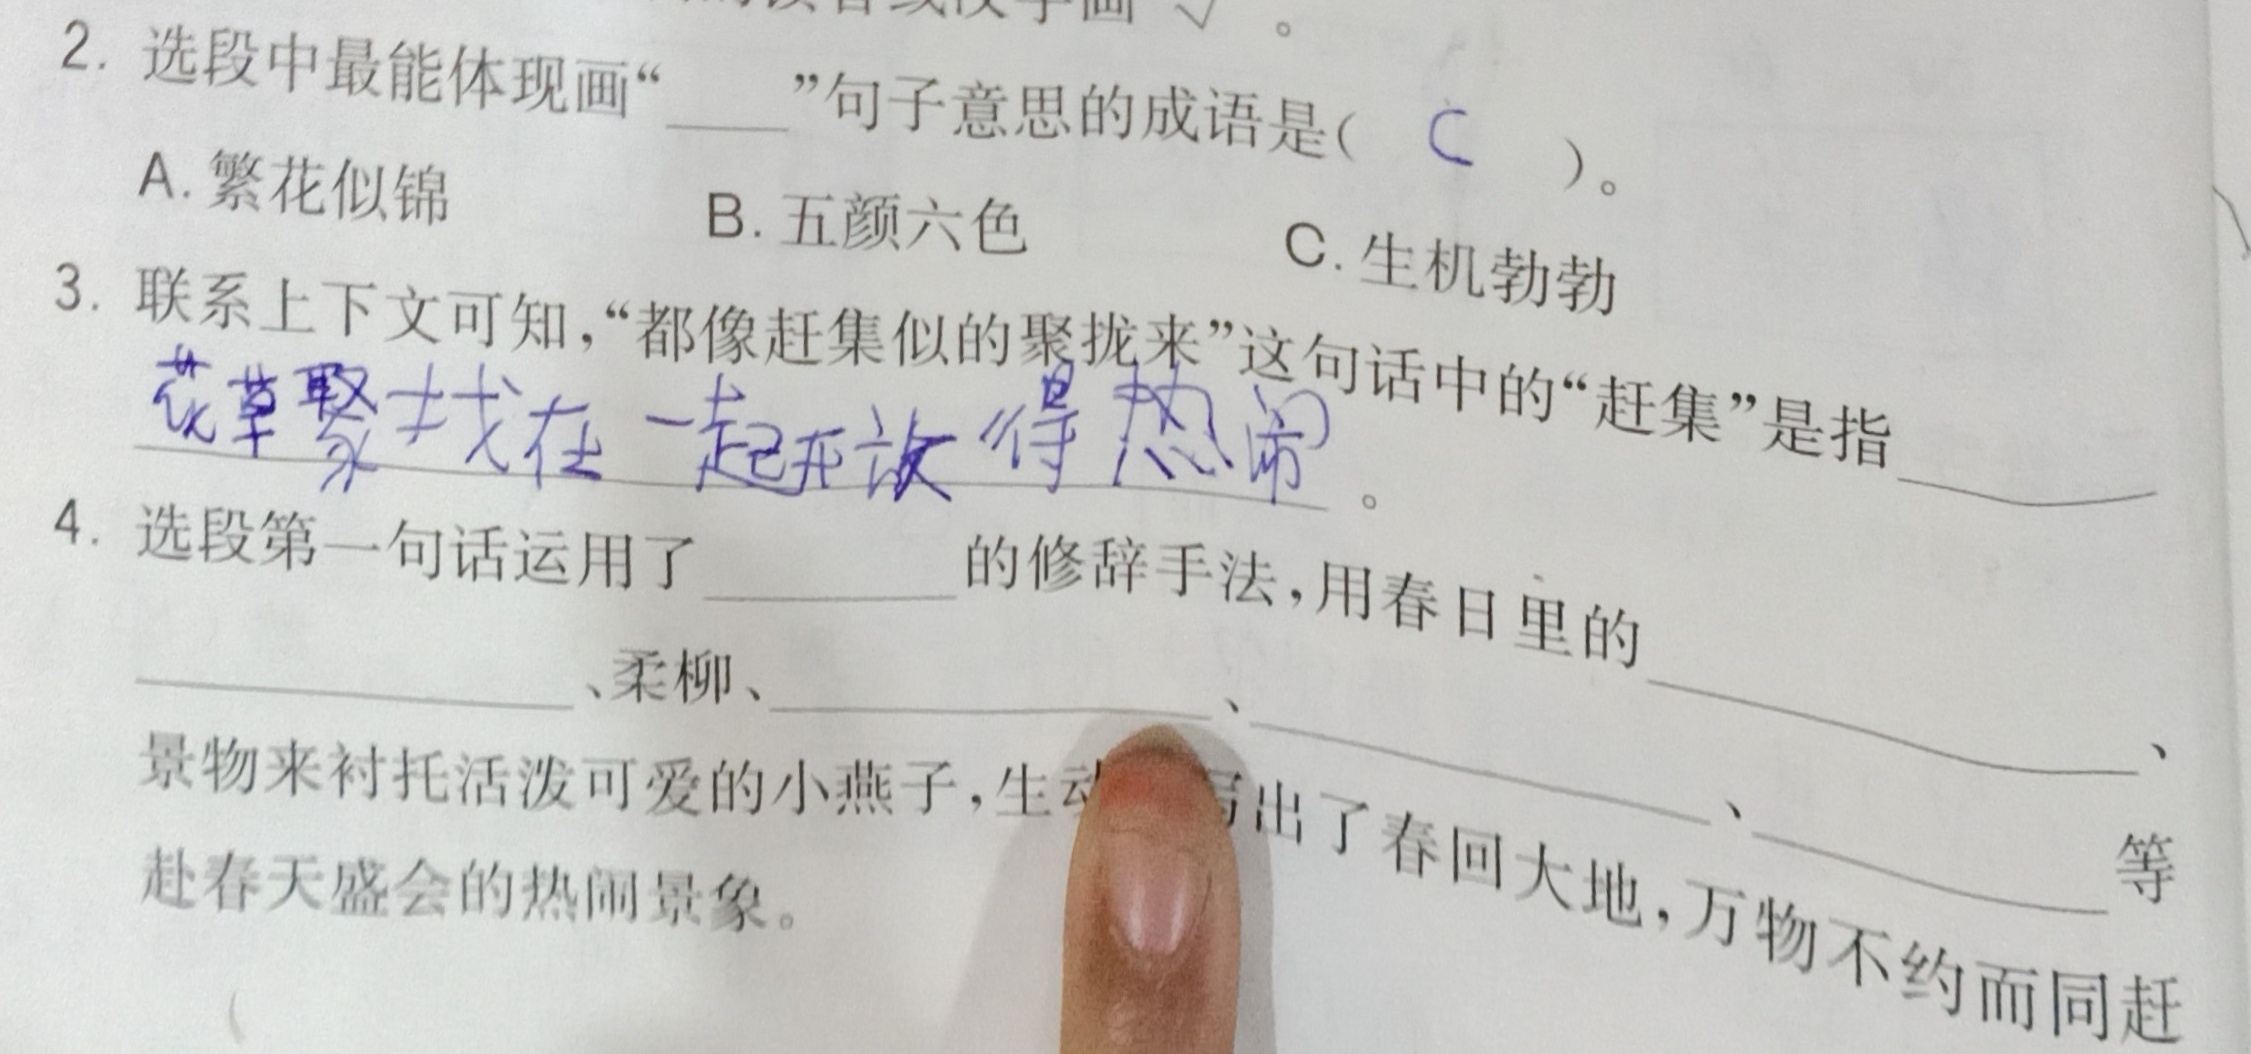 2. 选段中最能体现画“____”句子意思的成语是( C )。
A. 繁花似锦 B. 五颜六色 C. 生机勃勃
3. 联系上下文可知,“都像赶集似的聚拢来”这句话中的“赶集”是指____
花草聚找在一起开放得热闹。
4. 选段第一句话运用了____的修辞手法,用春日里的____、
____、柔柳、____、____、____等
景物来衬托活泼可爱的小燕子,生动 写出了春回大地,万物不约而同赶
赴春天盛会的热闹景象。